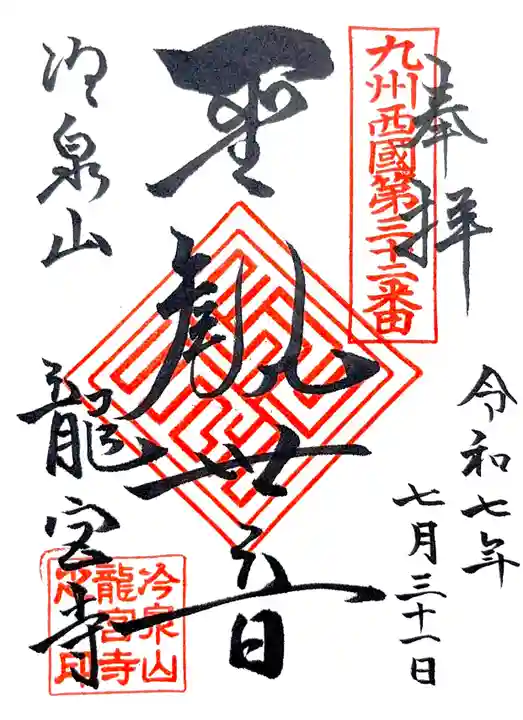 奉拝
九州西國第三十二番
令和七年
七月三十一日
聖観世音
冷泉山
龍宮寺
冷泉山
龍宮寺